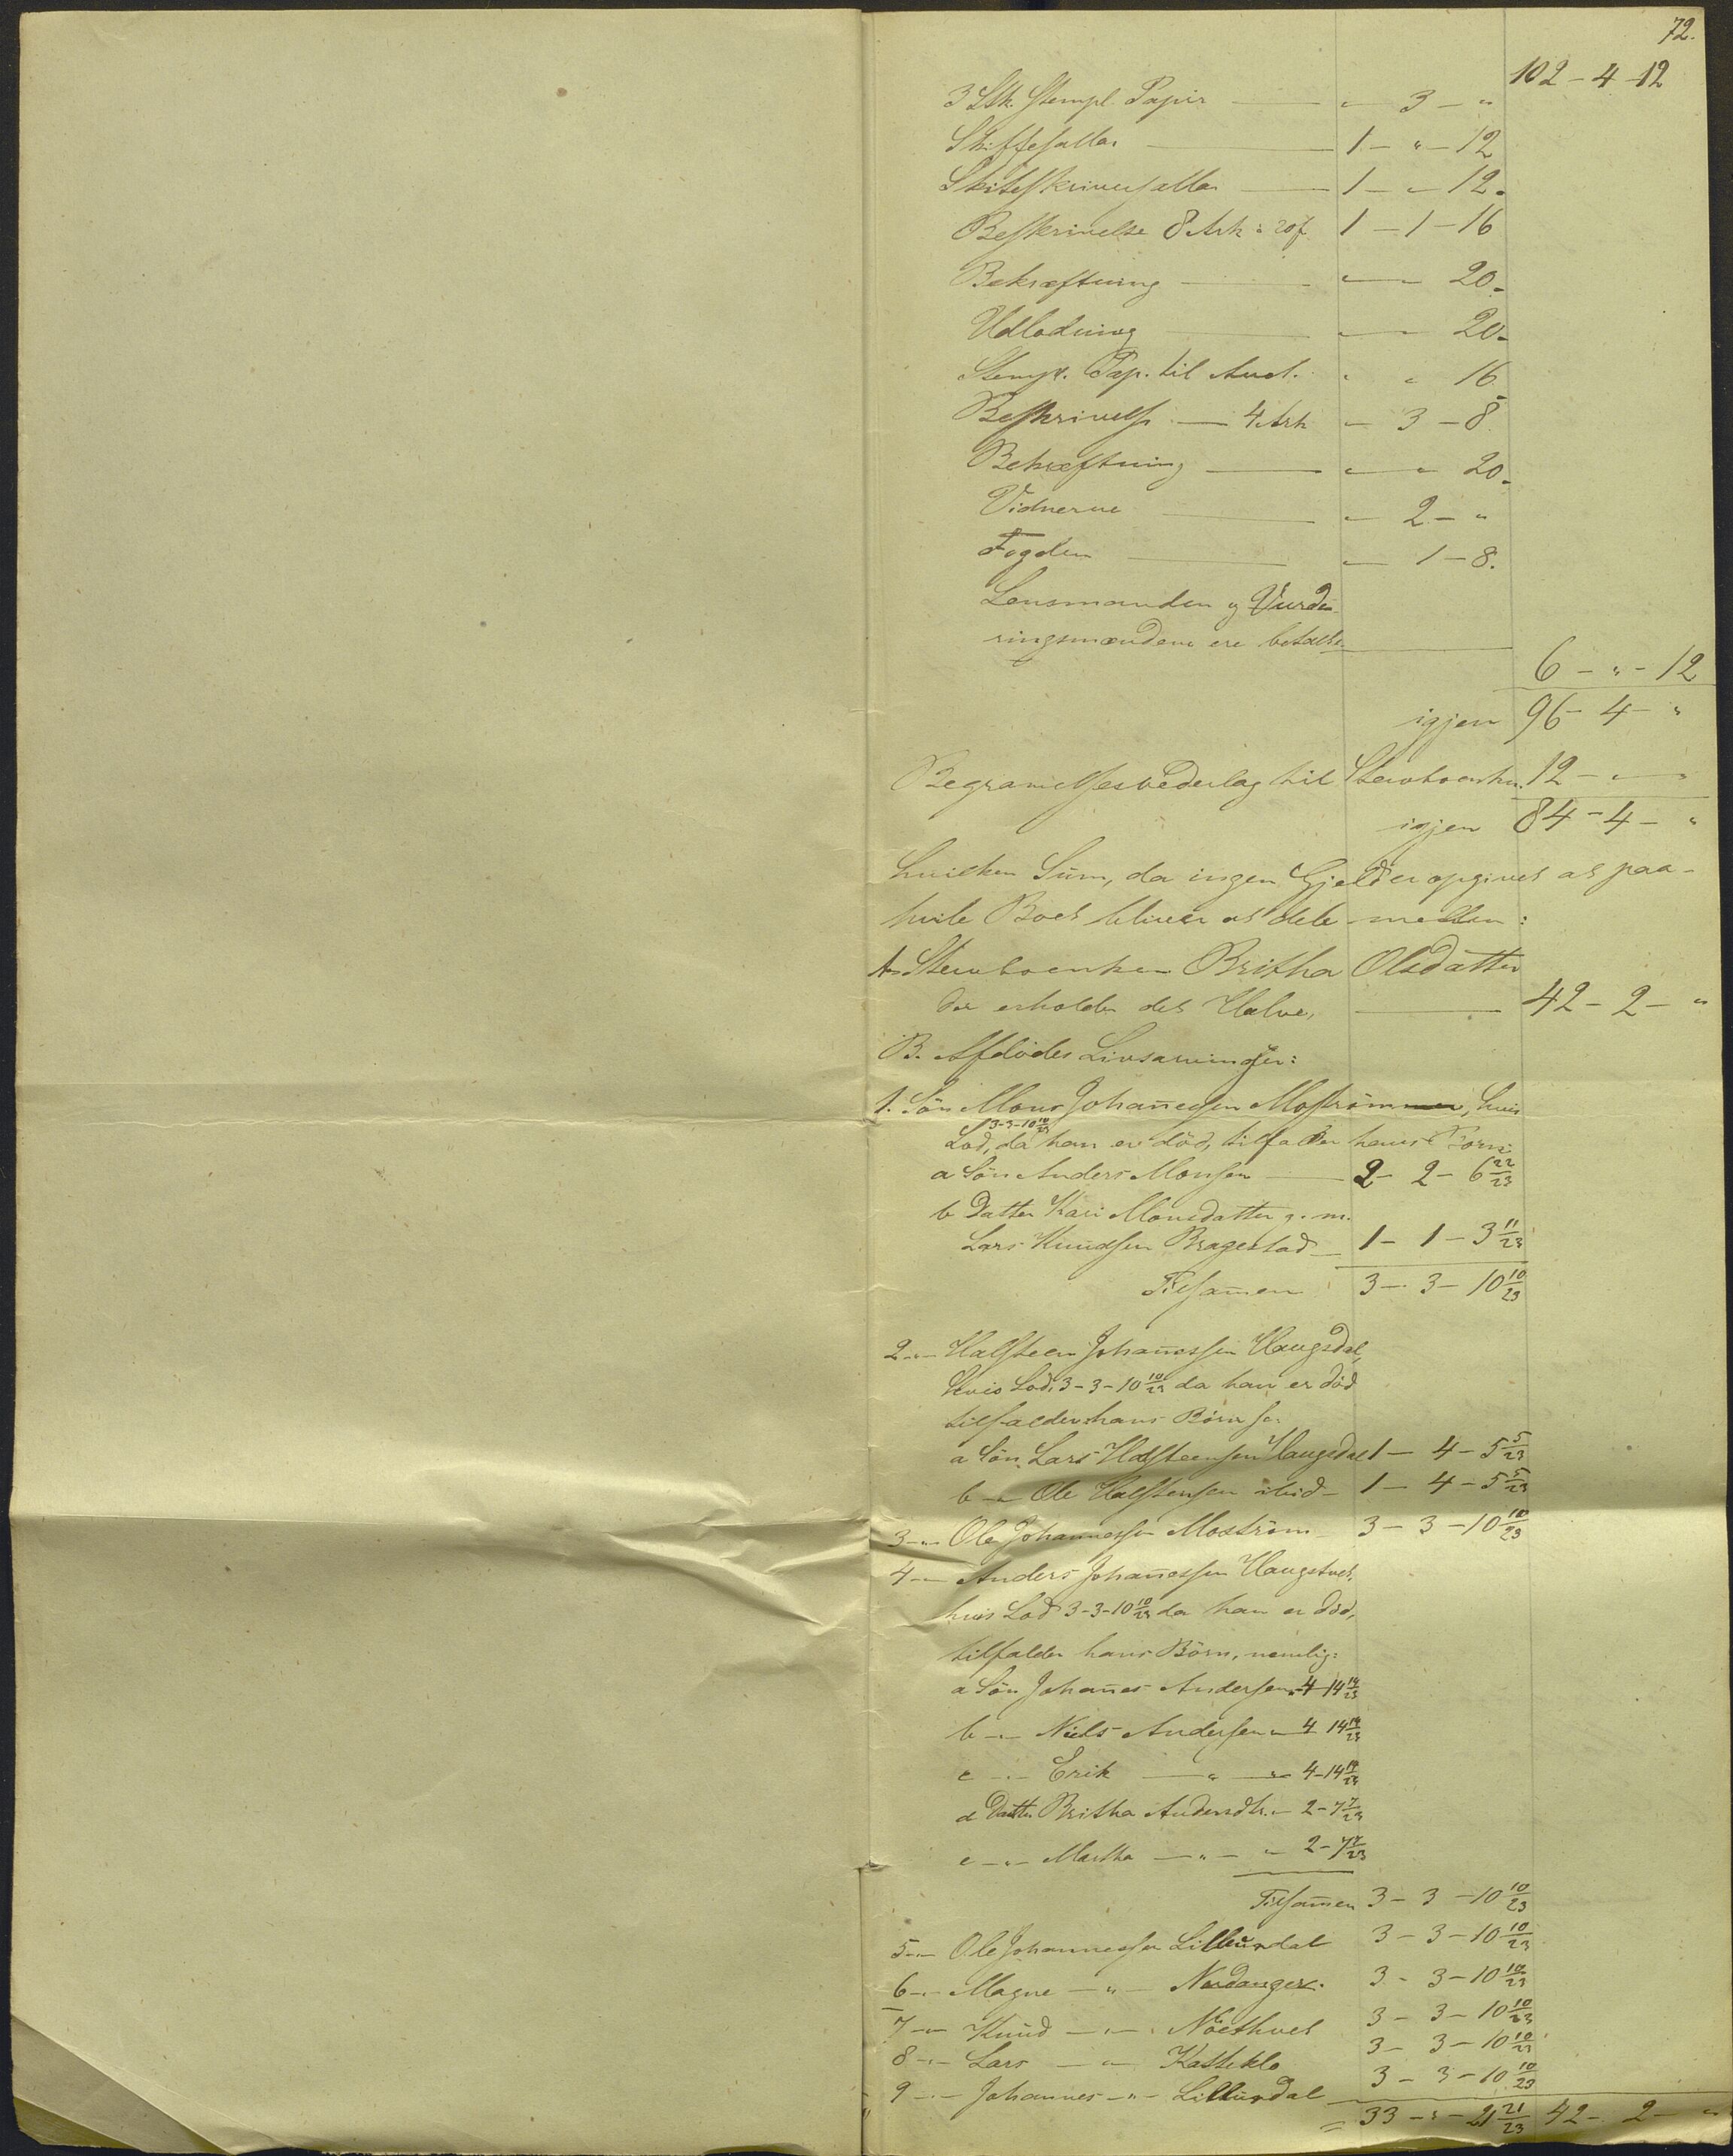 72.
102 - 4 - 12
3 Stk. Stempl. Papir — " 3 - "
Skiftesallar — 1 - " - 12
Skifteskriversallar — 1 - " - 12.
Beskrivelse 8 Ark a 20 f 1 - 1 - 16
Bekræftning — " — " 20.
Udlodning — " — " 20.
Stempl. Pap. til Auct. " " 16
Beskrivelse — 4 Ark " 3 - 8.
Bekræftning — " — " 20.
Vidnerne — " 2 - "
Fogden — " 1 - 8.
Lensmanden og Vurde-
ringsmændene ere betalte — 6 - " - 12
igjen 96 - 4 - "
Begravelsesvederlag til Stervboenken 12 - " - "
igjen 84 - 4 - "
hvilken Sum, da ingen Gjeld er opgivet at paa-
hvile Boet bliver at dele mellem:
A. Stervboenken Britha Olsdatter
der erholder det Halve, — 42 - 2 - "
B. Afdødes Livsarvinger:
1. Søn Mons Johannessen Mostrøm, hvis
3-3-10 10/23
Lod, da han er død, tilfalder hans Børn:
a Søn Anders Monsen — 2 - 2 - 6 22/23
b Datter Kari Monsdatter g. m.
Lars Knudsen Bragestad — 1 - 1 - 3 11/23
Tilsamen 3 - 3 - 10 10/23
2 - " - Halsteen Johannessen Haugsdal,
hvis Lod, 3-3-10 10/23 da han er død
tilfalder hans Børn
a Søn Lars Halsteensen Haugsdal 1 - 4 - 5 5/23
b - " Ole Halstensen ibid - 1 - 4 - 5 5/23
3 - " - Ole Johannessen Mostrøm - 3 - 3 - 10 10/23
4 - " - Anders Johannessen Haugstvet,
hvis Lod 3-3-10 10/23 da han er død,
tilfalder hans Børn, nemlig:
a Søn Johanes Andersen " 4 14 14/23
b - " - Niels Andersen " 4 14 14/23
c - " - Erik — " — " 4-14 14/23
d Datter Britha Andersdtr. " 2-7 7/23
e - " - Martha — " — " 2-7 7/23
Tilsamen 3 - 3 - 10 10/23
5 - " - Ole Johannessen Lillurdal 3 - 3 - 10 10/23
6 - " - Magne — " — Nordanger. 3 - 3 - 10 10/23
7 - " - Knud — " — Nøethvet 3 - 3 - 10 10/23
8 - " - Lars — " — Katteklo 3 - 3 - 10 10/23
9 - " - Johannes - " - Lillurdal 3 - 3 - 10 10/23
33 - " - 21 21/23 42 - 2 - "